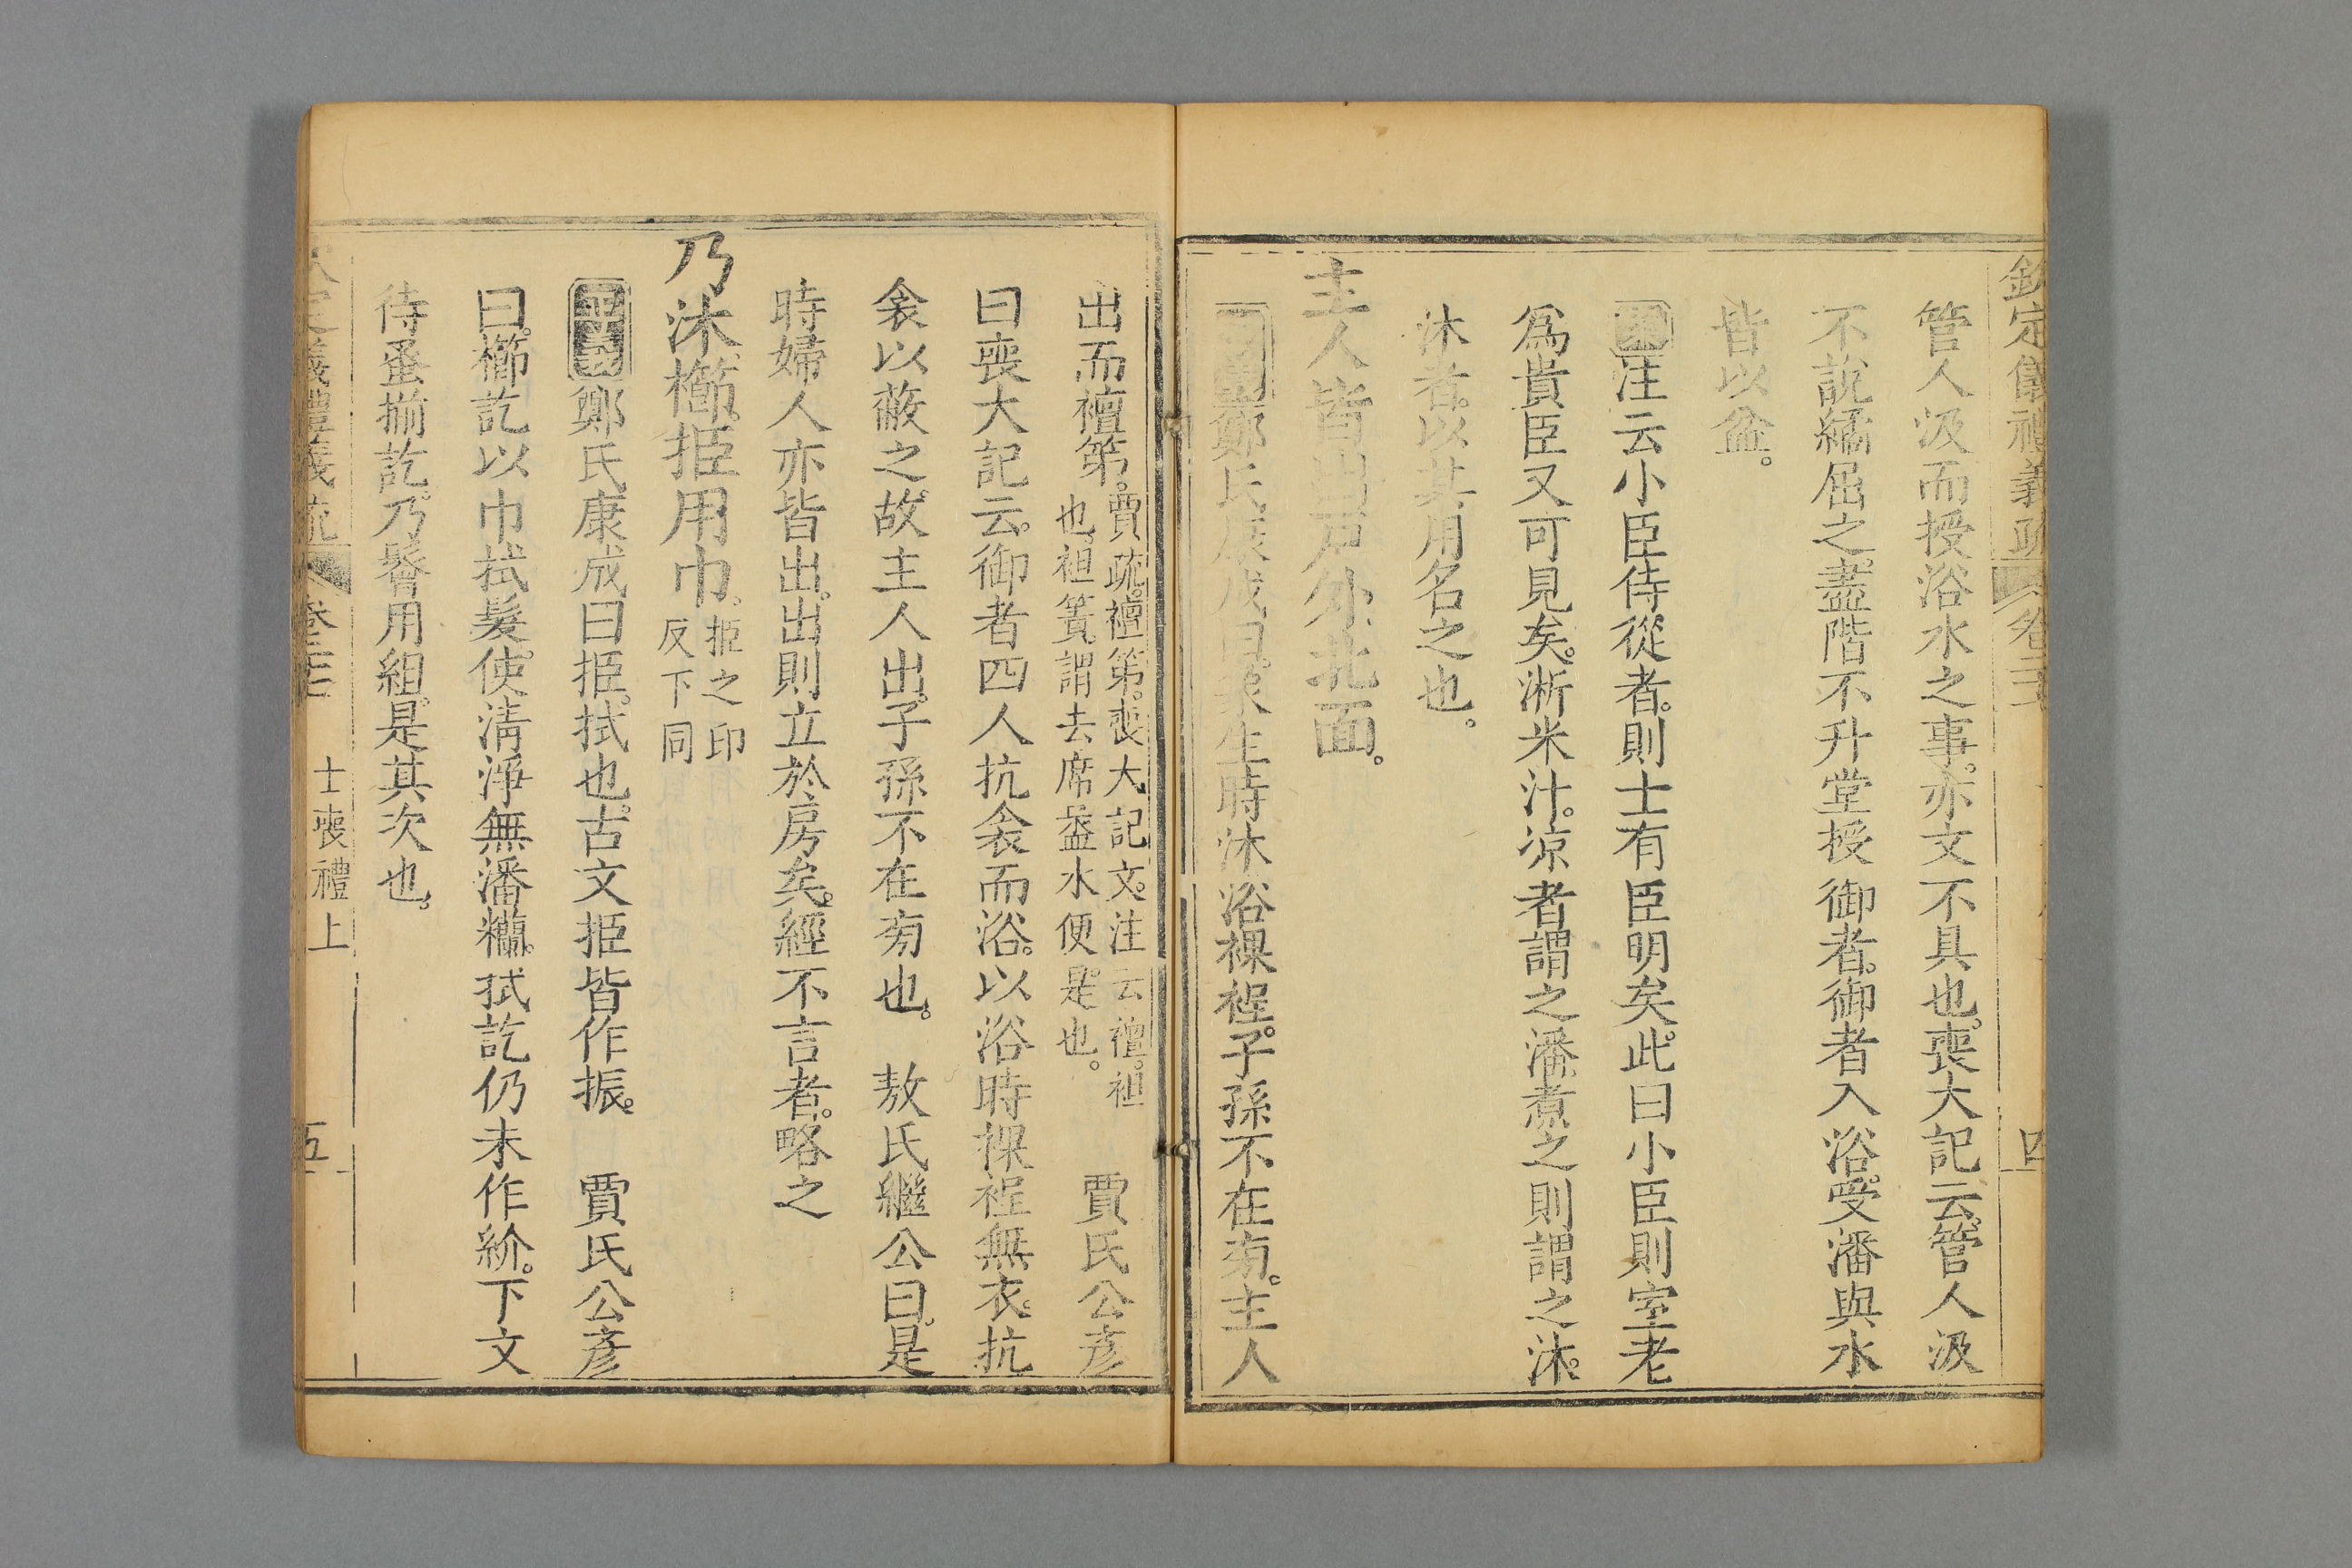 欽定儀禮義疏 卷二十 四
管人汲而授浴水之事。亦文不具也。喪大記云。管人汲
不說繘屈之。盡階不升堂授御者。御者入浴。受潘與水
皆以盆。
案注云小臣侍從者。則士有臣明矣。此曰小臣則室老
爲貴臣又可見矣。淅米汁。凉者謂之潘。煮之則謂之沐。
沐者。以其用名之也。
主人皆出戶外北面。
鄭氏康成曰。象生時沐浴裸裎。子孫不在旁。主人
出而襢第。賈疏。襢第。喪大記文。注云襢。袒
也。袒簀。謂去席盝水便是也。 賈氏公彥
曰喪大記云。御者四人抗衾而浴。以浴時裸裎無衣。抗
衾以蔽之。故主人出。子孫不在旁也。 敖氏繼公曰。是
時婦人亦皆出。出則立於房矣。經不言者。略之
乃沐櫛。挋用巾。挋之印
反下同
鄭氏康成曰挋。拭也。古文挋皆作振。 賈氏公彥
曰。櫛訖以巾拭髮。使淸淨無潘糷。拭訖仍未作紒。下文
待蚤揃訖。乃鬠用組。是其次也。
欽定儀禮義疏 卷二十 士喪禮上 五